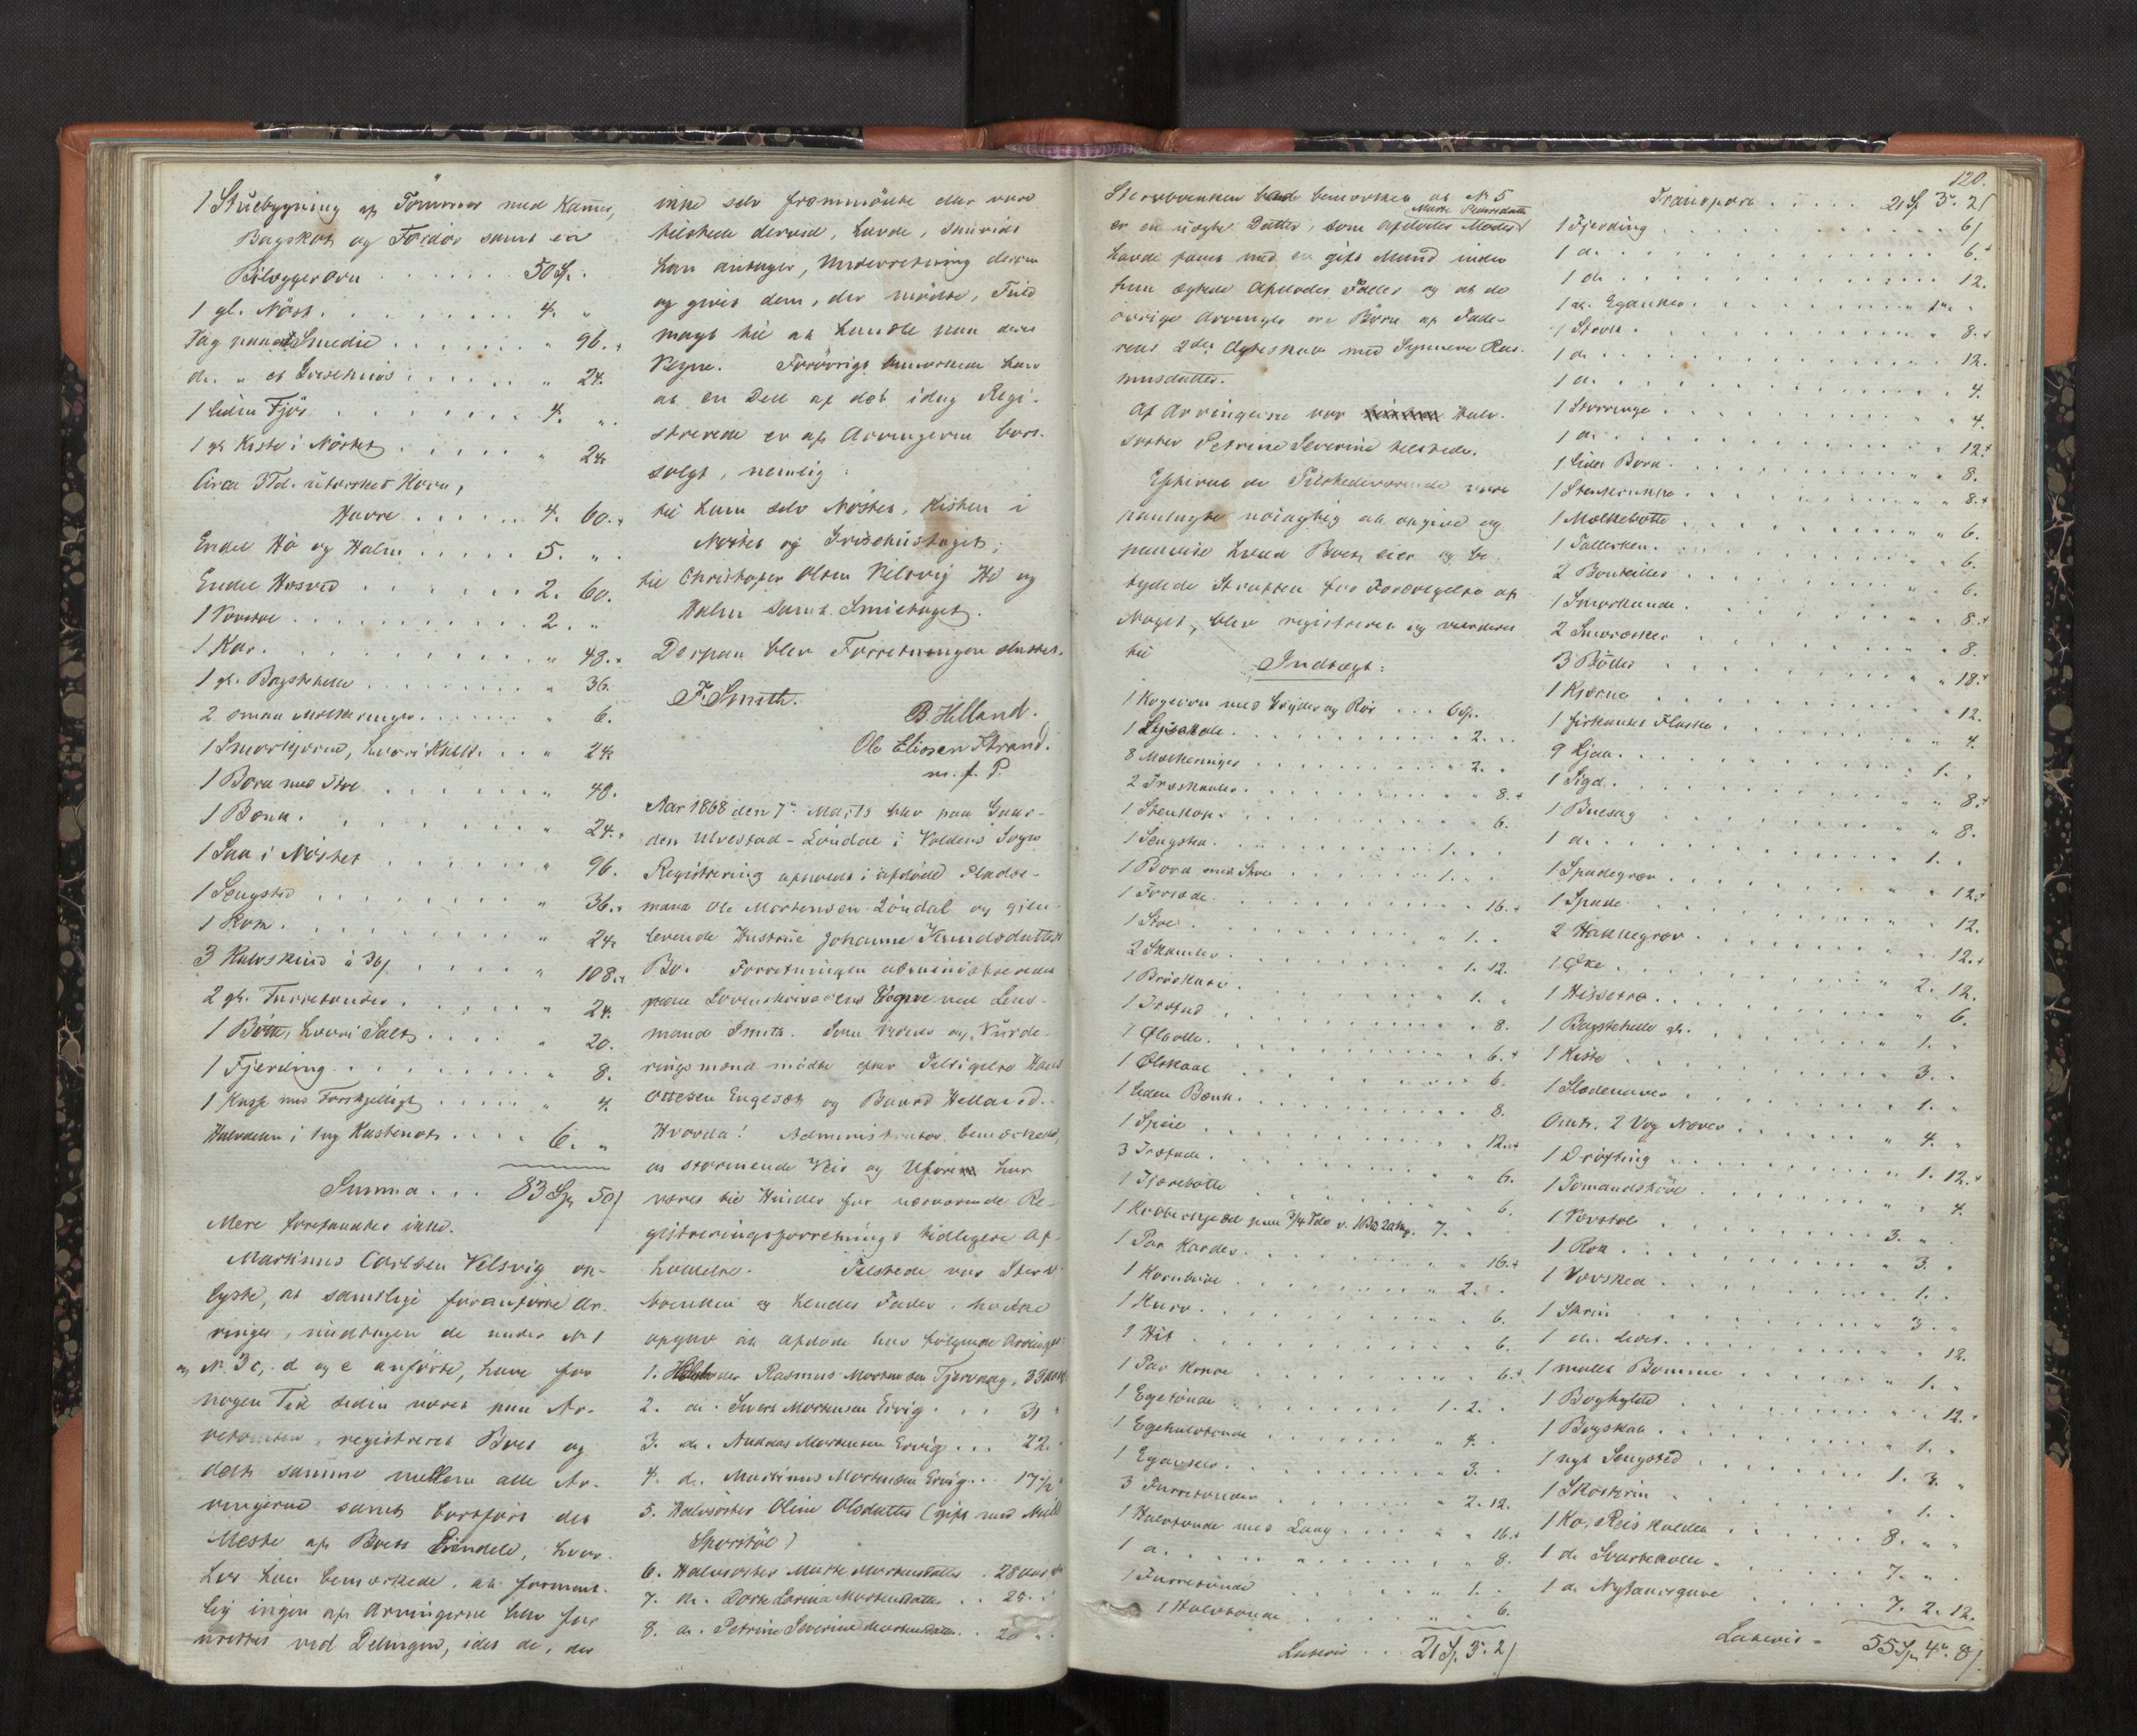 1 Stuebygning af Tömmer med Kamer,
Bagskot og Fordör samt en
Bilæggerovn . . . . . . . 50 Sp.
1 gl. Nöst . . . . . . . . 4. "
Tag paa et Smedie . . . . . . " 96.
do. " et Ildhuus . . . . . . " 24.
1 liden Fjös . . . . . . . . 4. "
1 gl. Kiste i Nöstet . . . . . " 24
Circa 3 Td. utærsket Korn,
Havre . . . . . 4. 60.
Endel Hö og Halm . . . . . 5. "
Endel Hæsved . . . . . . 2. 60.
1 Vævstol . . . . . . . . 2. "
1 Kar . . . . . . . . . " 48.
1 gl. Bagstehelle . . . . . . " 36.
2 smaa Melkeringer . . . . . " 6.
1 Smörkjærne, hvori Kalk . . . " 24
1 Bord med Stol . . . . . . " 48.
1 Bænk . . . . . . . . . " 24.
1 Saa i Nöstet . . . . . . " 96.
1 Sengsted . . . . . . . . " 36.
1 Rok . . . . . . . . . " 24
3 Kalvskind à 36 . . . . . " 108.
2 gl. Furretönder . . . . . . " 24.
1 Bötte, hvori Salt . . . . . " 20.
1 Fjerding . . . . . . . . " 8.
1 Kasse med Forskjelligt . . . . " 4.
Halvdelen i Kastenot . . . . 6. "
Summa . . . 83 Sp 50
Mere forefandtes ikke.
Martinus Carlsen Velsvig op-
lyste, at samtlige foranförte Ar-
vinger, undtagen de under No 1
og No 3 c, d og e anförte, have for
nogen Tid siden været paa Ar-
vetomten, registreret Boet og
delt samme mellem alle Ar-
vingerne samt bortfört det
Meste af Boets Eiendele, hvor-
hos han bemærkede, at forment-
lig ingen af Arvingerne har for-
urettet ved Delingen, idet de, der
ikke selv fremmödte eller vare
tilstede derved, havde, saavidt
han antager, Underretning derom
og givet dem, der mödte, Fuld-
magt til at handle paa deres
Vegne. Forövrigt bemærkede han
at en Deel af det idag Regi-
strerede er af Arvingerne bort-
solgt, nemlig:
til ham selv Nöstet, Kisten i
Nöstet og Ildhustaget;
til Christopher Olsen Velsvig Hö og
Halm samt Smietaget.
Derpaa blev Forretningen sluttet.
F. Smith.
B. Hilland.
Ole Eliasen Strand.
m. f. P.
Aar 1868 den 7de Marts blev paa Gaar-
den Ulvestad-Löndal i Voldens Sogn
Registrering afholdt i afdöde Plads-
mand Ole Mortensen Löndal og gjen-
levende Hustrue Johanne Knudsdatters
Bo. Forretningen administreredes
paa Sorenskriverens Vegne ved Lens-
mand Smith. Som Vidner og Vurde-
ringsmænd mödte efter Tilsigelse Hans
Ottesen Engeset og Baard Helland.
Hvorda! Administrator bemærkede,
at stormende Veir og Uföre har
været til Hinder for nærværende Re-
gistreringsforretnings tidligere Af-
holdelse. Tilstede var Sterv-
boenken og hendes Fader, hvilke
opgav at afdöde har fölgende Arvinger:
1. Halvbroder Rasmus Mortensen Tjervaag, 33 Aar
2. do. Sivert Mortensen Ervig . . . 31 "
3. do. Andreas Mortensen Ervig . . . 22. "
4. do. Martinus Mortensen Ervig . . . 17½ "
5. Halvsöster Oline Olsdatter (gift med
Sporstöl)
6. Halvsöster Marthe Mortensdatter . 28 Aar
7. do. Dorte Larina Mortensdatter . . 25. "
8. do. Petrine Severine Mortensdatter . . 20 "
120.
Stervboenken bemærker at No 5
Marte Pedersdatter
er en uægte Datter, som Afdödes Moder
havde faaet med en gift Mand inden
hun ægtede Afdödes Fader og at de
övrige Arvinger ere Börn af Fade-
rens 2det Ægteskab med Synneve Ras-
musdatter.
Af Arvingerne var Halv-
söster Petrine Severine tilstede.
Efterat de Tilstedeværende vare
paalagte nöiagtig at opgive og
paavise hvad Boet eier og be-
tydede Straffen for Fordölgelse af
Noget, blev registreret og vurderet
til
Indtægt:
1 Kogeovn med Gryder og Rör . . . 6 Sp.
1 Lysskole . . . . . . . . " 2. "
8 Melkeringer . . . . . . . " 2. "
2 Træskaaler . . . . . . . " " 8.
1 Stenkop . . . . . . . . " " 6.
1 Sengsted . . . . . . . . 1. "
1 Bord med Skuf . . . . . . 1. "
1 Forsæde . . . . . . . . " 16.
1 Stol . . . . . . . . . " 1. "
2 Skamler . . . . . . . . " 1. 12.
1 Brödkurv . . . . . . . . 1. "
1 Træfad . . . . . . . . " 8.
1 Ölbolle . . . . . . . . " 6.
1 Ölskaal . . . . . . . . " 6.
1 liden Bænk . . . . . . . . 8.
1 Speil . . . . . . . . . " 12.
3 Træfade . . . . . . . . " 6.
1 Tjærebötte . . . . . . . " " 6.
1 Kobberkjedel paa 3/4 Tde v. 1 Bp 20 Mrk. 7. "
1 Par Karder . . . . . . . " 16.
1 Kornböre . . . . . . . . 2. "
1 Kurv . . . . . . . . . " 6.
1 Hit . . . . . . . . . " 6.
1 Par Krake . . . . . . . " 6.
1 Egetönde . . . . . . . 1. 2. "
1 Egehalvtönde . . . . . . " 4. "
1 Eganker . . . . . . . . " 3. "
3 Furretönder . . . . . . " 2. 12.
1 Halvtönde med Laag . . . . " " 16.
1 do. . . . . . . . . . " " 8.
1 Furretönde . . . . . . . " 1. "
1 Halvtönde . . . . . . . " " 6.
Lateris . . . 21 Sp. 3. 2
Transport . . . . . 21 Sp 3. 2
1 Fjerding . . . . . . . . . 6
1 do. . . . . . . . . . . 6.
1 do . . . . . . . . . . 12.
1 do. Eganker . . . . . . . . "
1 Stamp . . . . . . . . . . 8.
1 do. . . . . . . . . . . 12.
1 do. . . . . . . . . . . 4.
1 Storringe . . . . . . . . " 4.
1 do. . . . . . . . . . . 12.
1 lidet Bord . . . . . . . . " 8.
1 Stenkrukke . . . . . . . . " 8.
1 Melkebötte . . . . . . . . " 6.
1 Tallerken . . . . . . . . " 6.
2 Bouteiller . . . . . . . . " 6.
1 Smörkande . . . . . . . . " 8.
2 Smöræsker . . . . . . . . " 8.
3 Bötter . . . . . . . . . " 18.
1 Kjærne . . . . . . . . . " 12.
1 firkantet Flaske . . . . . . " 4.
9 Ljaa . . . . . . . . . . 1. "
1 Sigd . . . . . . . . . . " 8.
1 Buesag . . . . . . . . . " 8.
1 do. . . . . . . . . . . 1. "
1 Spadegrev . . . . . . . . " 12.
1 Spade . . . . . . . . . " 12.
2 Hakkegrev . . . . . . . . " 12.
1 Öxe . . . . . . . . . 2. 12.
1 Hesjetræ . . . . . . . . " 6.
1 Bagstehelle gl. . . . . . . . 1. "
1 Kiste . . . . . . . . . . 3. "
1 Slædenaver . . . . . . . . 1. "
Omtr. 2 Vog Næver . . . . . " 4. "
1 Dröfting . . . . . . . . 1. 12.
1 Tomandshövl . . . . . . . " 4.
1 Vævstol . . . . . . . . 3. "
1 Rok . . . . . . . . . . 3. "
1 Vævsked . . . . . . . . 1. "
1 Skrin . . . . . . . . " 3. "
1 do. lidet . . . . . . . . . 12.
1 malet Bomme . . . . . . . 1. "
1 Boghylde . . . . . . . . " 12.
1 Bogskab . . . . . . . . . 1. "
1 nyt Sengsted . . . . . . 1. 3. "
1 Skoskrin . . . . . . . . 1. "
1 Ko, Reiskolla . . . . . . 8. " "
1 do Svartkolla . . . . . . 7. " "
1 do Nylandsguve . . . . . . 7. 2. 12.
Lateris = 55 Sp 4. 8.